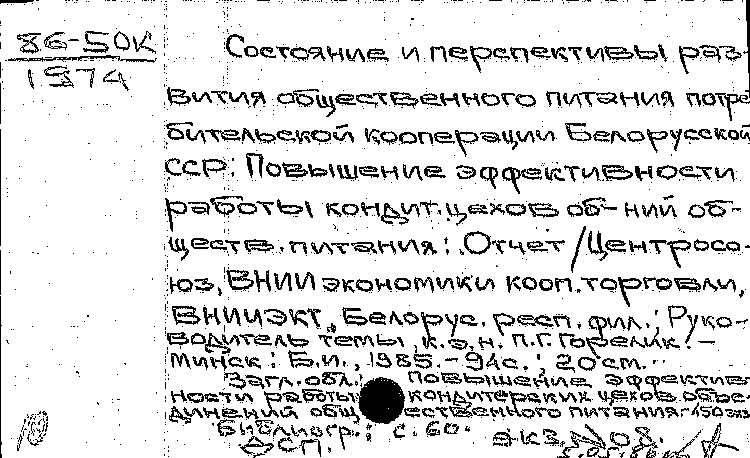 86-50К
1974
Состояние и перспективы раз-
вития общественного питания потре
бительской кооперации Белорусской
ССР: Повышение эффективности
работы кондит. цехов об-ний об-
ществ. питания: Отчет / Центросо-
юз, ВНИИ экономики кооп. торговли,
ВНИИЭКТ, Белорус. респ. фил.; Руко-
водитель темы, к.э.н. П.Г. Горелик. -
Минск: Б.и., 1985. - 94с.; 20см.
Загл. обл.: Повышение эффектив
ности работы кондитерских цехов объе-
динений общественного питания - 150экз
Библиогр.: с. 60.
ДСП. экз. №08.